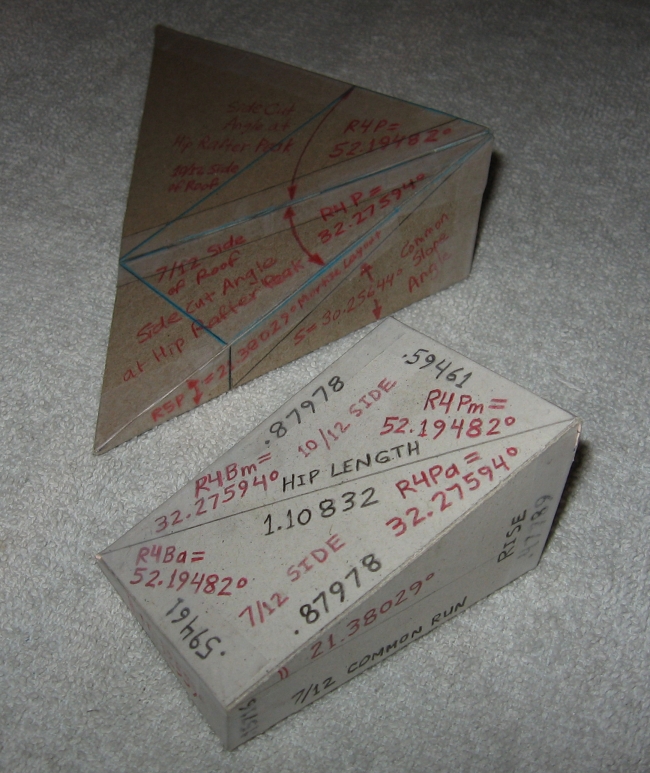 Side Cut
Angle at
Hip Rafter Peak
10/12 Side
of Roof
R4P=
52.19482°
R4P=
32.27594°
7/12 Side
of Roof
Side Cut Angle
at Hip Rafter Peak
R5P
= 21.38029° Mortise Layout
S= 30.25644°
Common
Slope
Angle
.59461
.87978
10/12 SIDE
R4Pm=
52.19482°
R4Bm=
32.27594°
HIP LENGTH
1.10832
R4Pa=
32.27594°
R4Ba=
52.19482°
7/12 SIDE
.87978
.59461
21.38029°
7/12 COMMON RUN
RISE